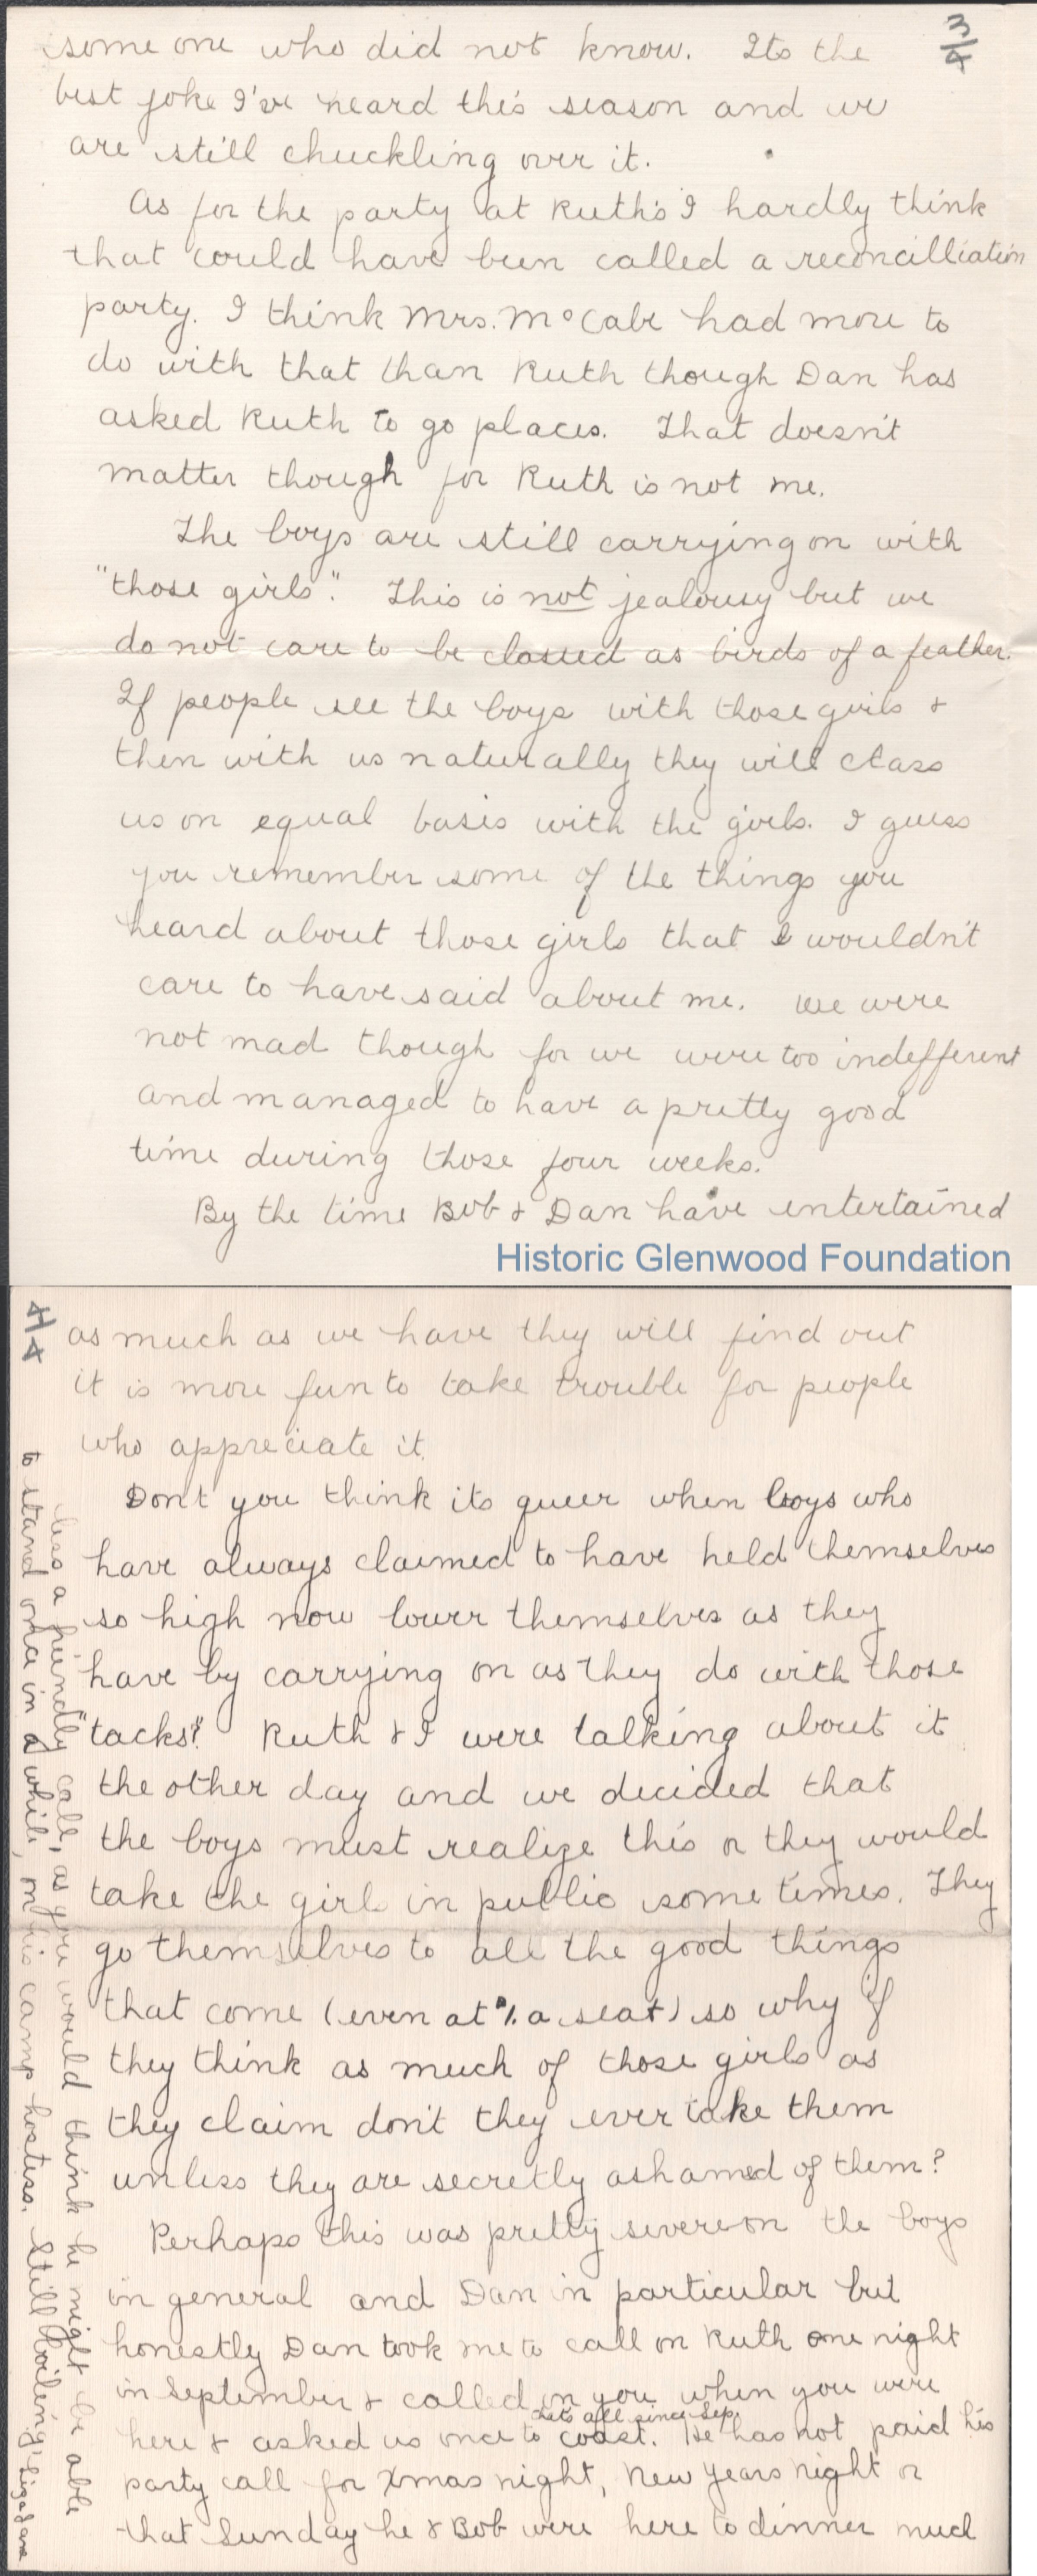 3/4
some one who did not know. Its the
best joke I've heard this season and we
are still chuckling over it.
As for the party at Ruth's I hardly think
that could have been called a reconcilliation
party. I think Mrs. McCabe had more to
do with that than Ruth though Dan has
asked Ruth to go places. That doesn't
matter though for Ruth is not me.
The boys are still carrying on with
"those girls". This is not jealousy but we
do not care to be classed as birds of a feather.
If people see the boys with those girls &
then with us naturally they will class
us on equal basis with the girls. I guess
you remember some of the things you
heard about those girls that I wouldn't
care to have said about me. We were
not mad though for we were too indefferent
and managed to have a pretty good
time during those four weeks.
By the time Bob & Dan have entertained
Historic Glenwood Foundation
4/4
as much as we have they will find out
it is more fun to take trouble for people
who appreciate it.
Don't you think its queer when boys who
have always claimed to have held themselves
so high now lower themselves as they
have by carrying on as they do with those
"tacks". Ruth & I were talking about it
the other day and we decided that
the boys must realize this or they would
take the girls in public sometimes. They
go themselves to all the good things
that come (even at $1. a seat) so why if
they think as much of those girls as
they claim don't they ever take them
unless they are secretly ashamed of them?
Perhaps this was pretty severe on the boys
in general and Dan in particular but
honestly Dan took me to call on Ruth one night
in September & called on you when you were
thats all since Sep.
here & asked us once to coast. He has not paid his
party call for Xmas night, New Years night or
that Sunday he & Bob were here to dinner much
less a friendly call, as you would think he might be able
to stand once in a while, on his camp hostess. Still boiling, Liza Jane